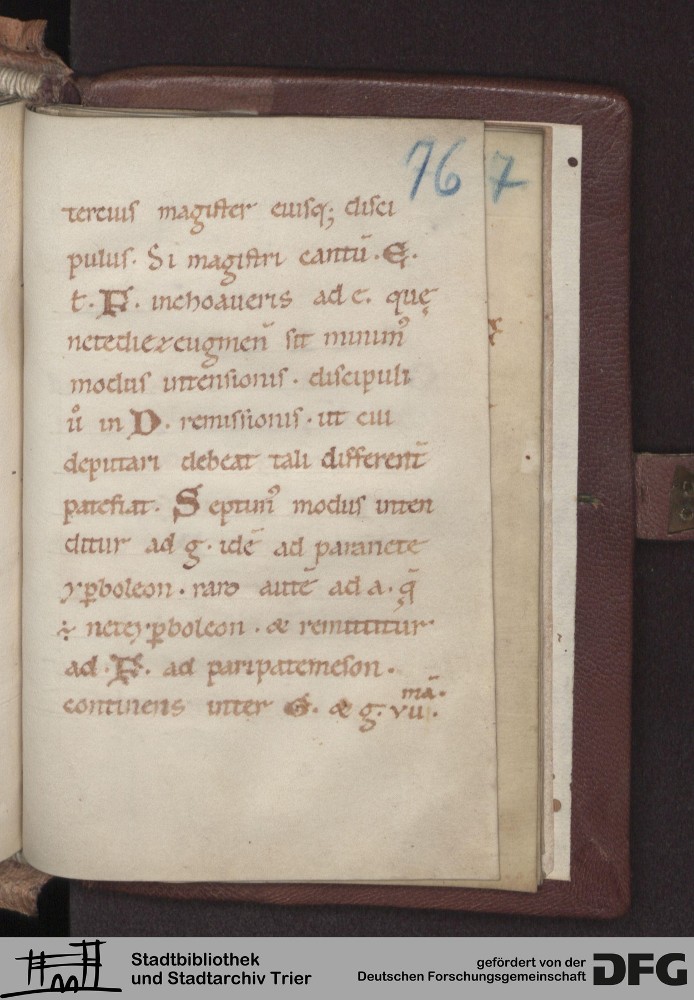 76 7
tercius magister eiusq; disci
pulus. Si magistri cantū. E.
t. F. inchoaveris ad c. quę
netediezeugmen̄ sit minim᷒
modus intensionis. discipuli
ů in D. remissionis. ut cui
deputari debeat tali different̄
patefiat. Septim᷒ modus inten
ditur ad g. idē ad paranete
yꝑboleon. raro autē ad a. q̄
÷ neteyꝑboleon. & remittitur
ad. F. ad paripatemeson.
continens inter G. & g. vii.mā.
Stadtbibliothek
und Stadtarchiv Trier
gefördert von der
Deutschen Forschungsgemeinschaft
DFG